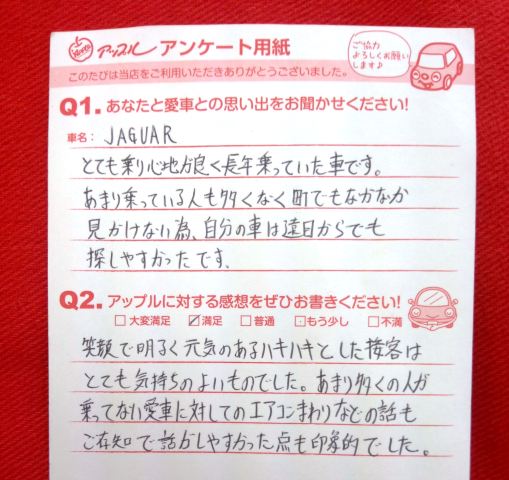 Apple
アップル アンケート用紙
ご協力
よろしくお願い
します♪
このたびは当店をご利用いただきありがとうございました。
Q1. あなたと愛車との思い出をお聞かせください!
車名: JAGUAR
とても乗り心地方良く長年乗っていた車です。
あまり乗っている人も多くなく町でもなかなか
見かけない為、自分の車は遠目からでも
探しやすかったです。
Q2. アップルに対する感想をぜひお書きください!
□大変満足 ☑満足 □普通 □もう少し □不満
笑顔で明るく元気のあるハキハキとした接客は
とても気持ちのよいものでした。あまり多くの人が
乗ってない愛車に対してのエアコンまわりなどの話も
ご存知で話がしやすかった点も印象的でした。